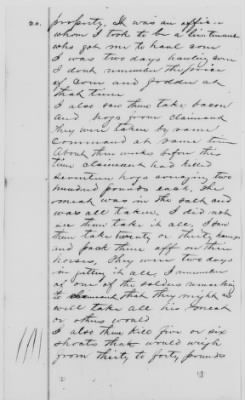 20. property. It was an officer
whom I took to be a lieutenant
who got me to haul corn
I was two days hauling corn
I dont remember the price
of corn and fodder at
that time
I also saw them take bacon
and hogs from claimant
They were taken by same
Command at same time
About three weeks before this
time claimant had killed
seventeen hogs averaging two
hundred pounds each. The
meat was in the salt and
was all taken. I did not
see them take it all, I saw
them take twenty or thirty hams
and pack them off on their
horses. They were two days
in getting it all. I remember
of one of the soldiers remarking
to claimant that they might as
well take all his meat
or others would
I also saw them kill five or six
shoats that would weigh
from thirty to forty pounds